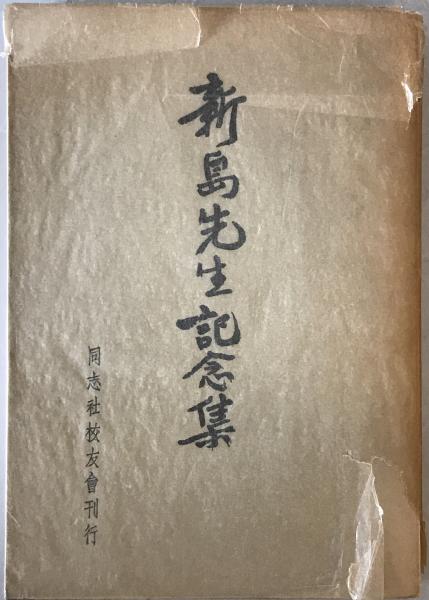 新島先生記念集
同志社校友會刊行